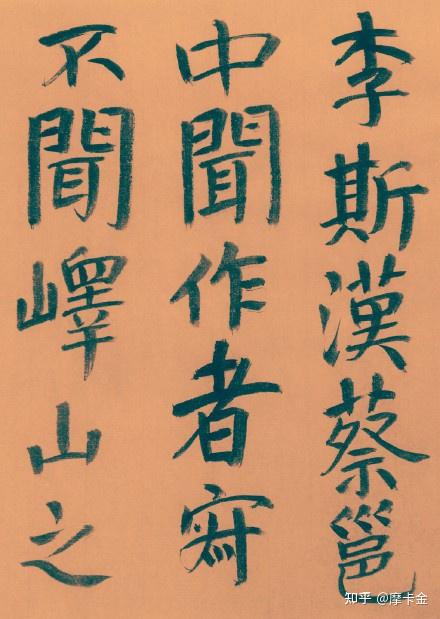 李斯漢蔡邕
中聞作者寂
不聞嶧山之
知乎 @摩卡金